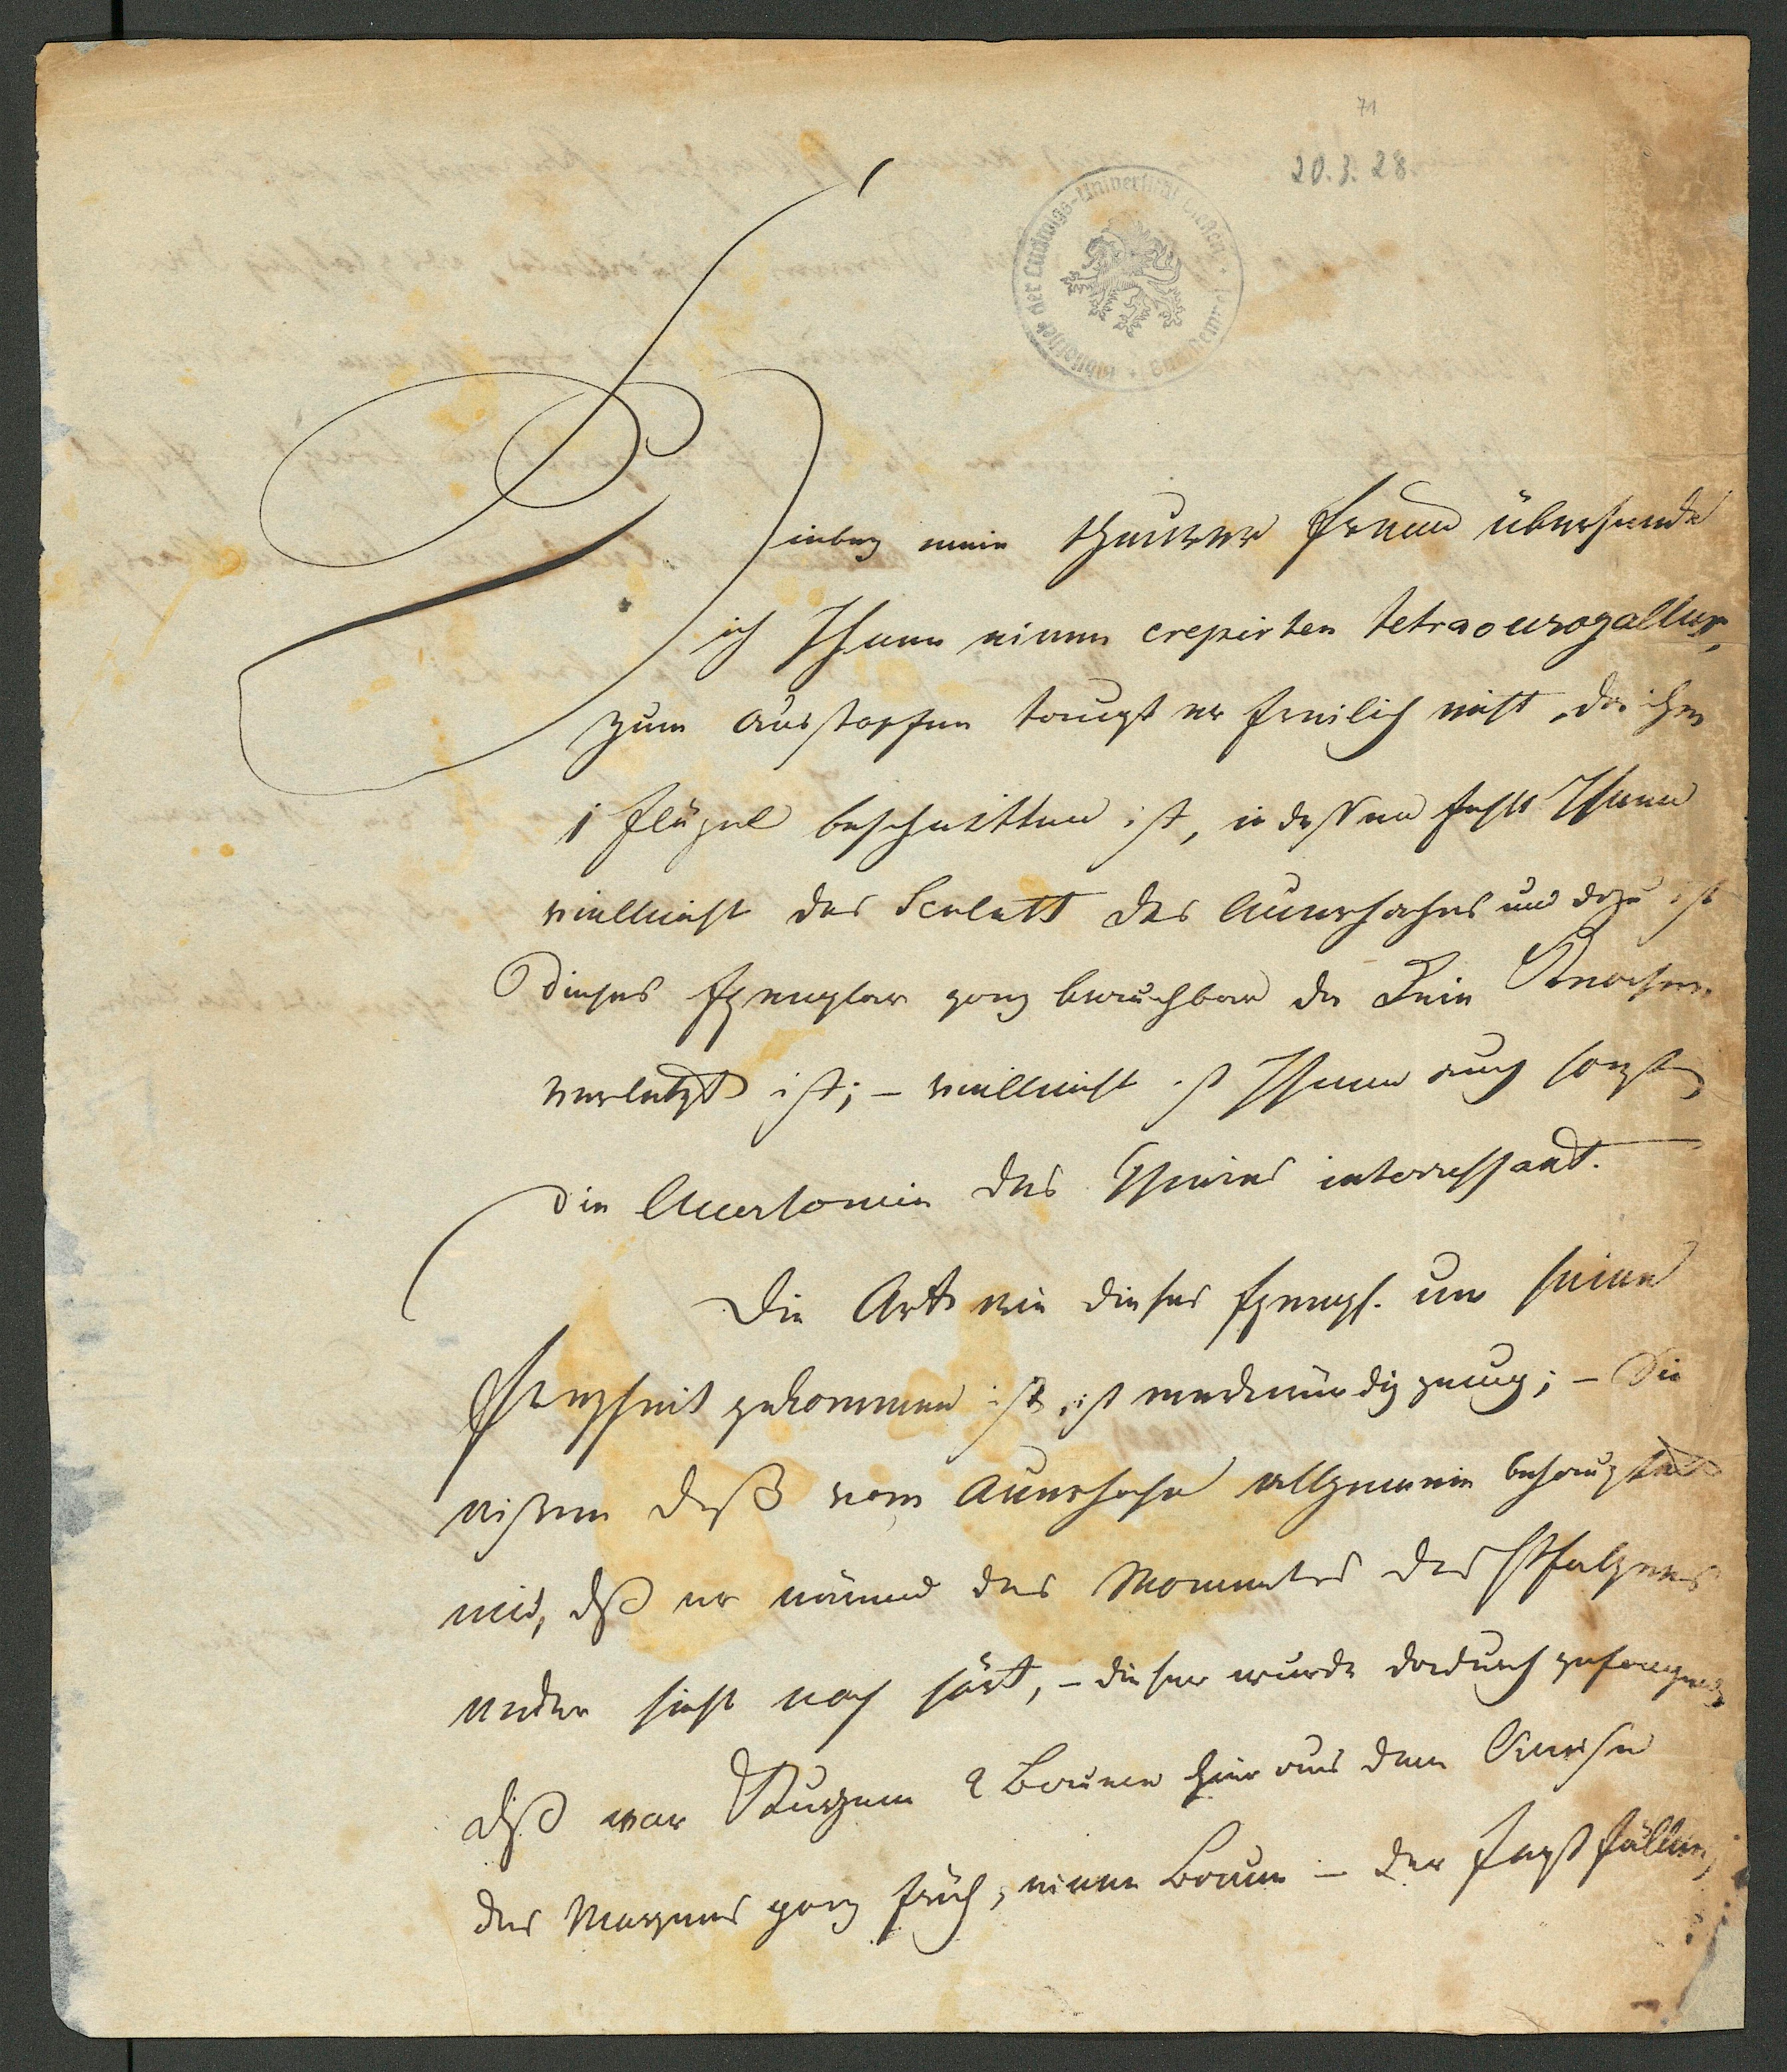 71
20.3.28.
Bibliothek der Ludwigs-Universität Gießen
Hiebey mein theurer Freund übersende
ich Ihnen einen crepirten tetrao urogallus,
zum Ausstopfen taugt er freilich nicht, da ihm
1 Flügel beschnitten ist, indessen fehlt Ihnen
vielleicht das Scelett des Auerhahns und dazu ist
dieses Exemplar ganz brauchbar da kein Knochen
verletzt ist; – vielleicht ist Ihnen auch sonst
die Anatomie des Thieres interessant.
Die Art wie dieses Exempl. um seine
Freyheit gekommen ist, ist merkwürdig genug; – Sie
wißen daß vom Auerhahn allgemein behauptet
wird, daß er während des Momentes des Pfalzens
weder sieht noch hört, – dieser wurde dadurch gefangen,
daß vor Kurzem 2 Bauern hier aus dem
des Morgens ganz früh, einen Baum – der fällen,